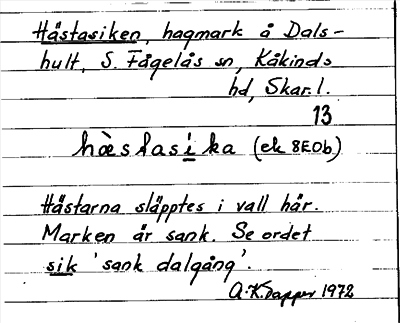 Hästasiken, hagmark å Dals-
hult, S. Fågelås sn, Kåkinds
hd, Skar. l.
13
hæ̀stasika (ek 8E0b)
Hästarna släpptes i vall här.
Marken är sank. Se ordet
sik 'sank dalgång'.
A.K. Dapper 1972